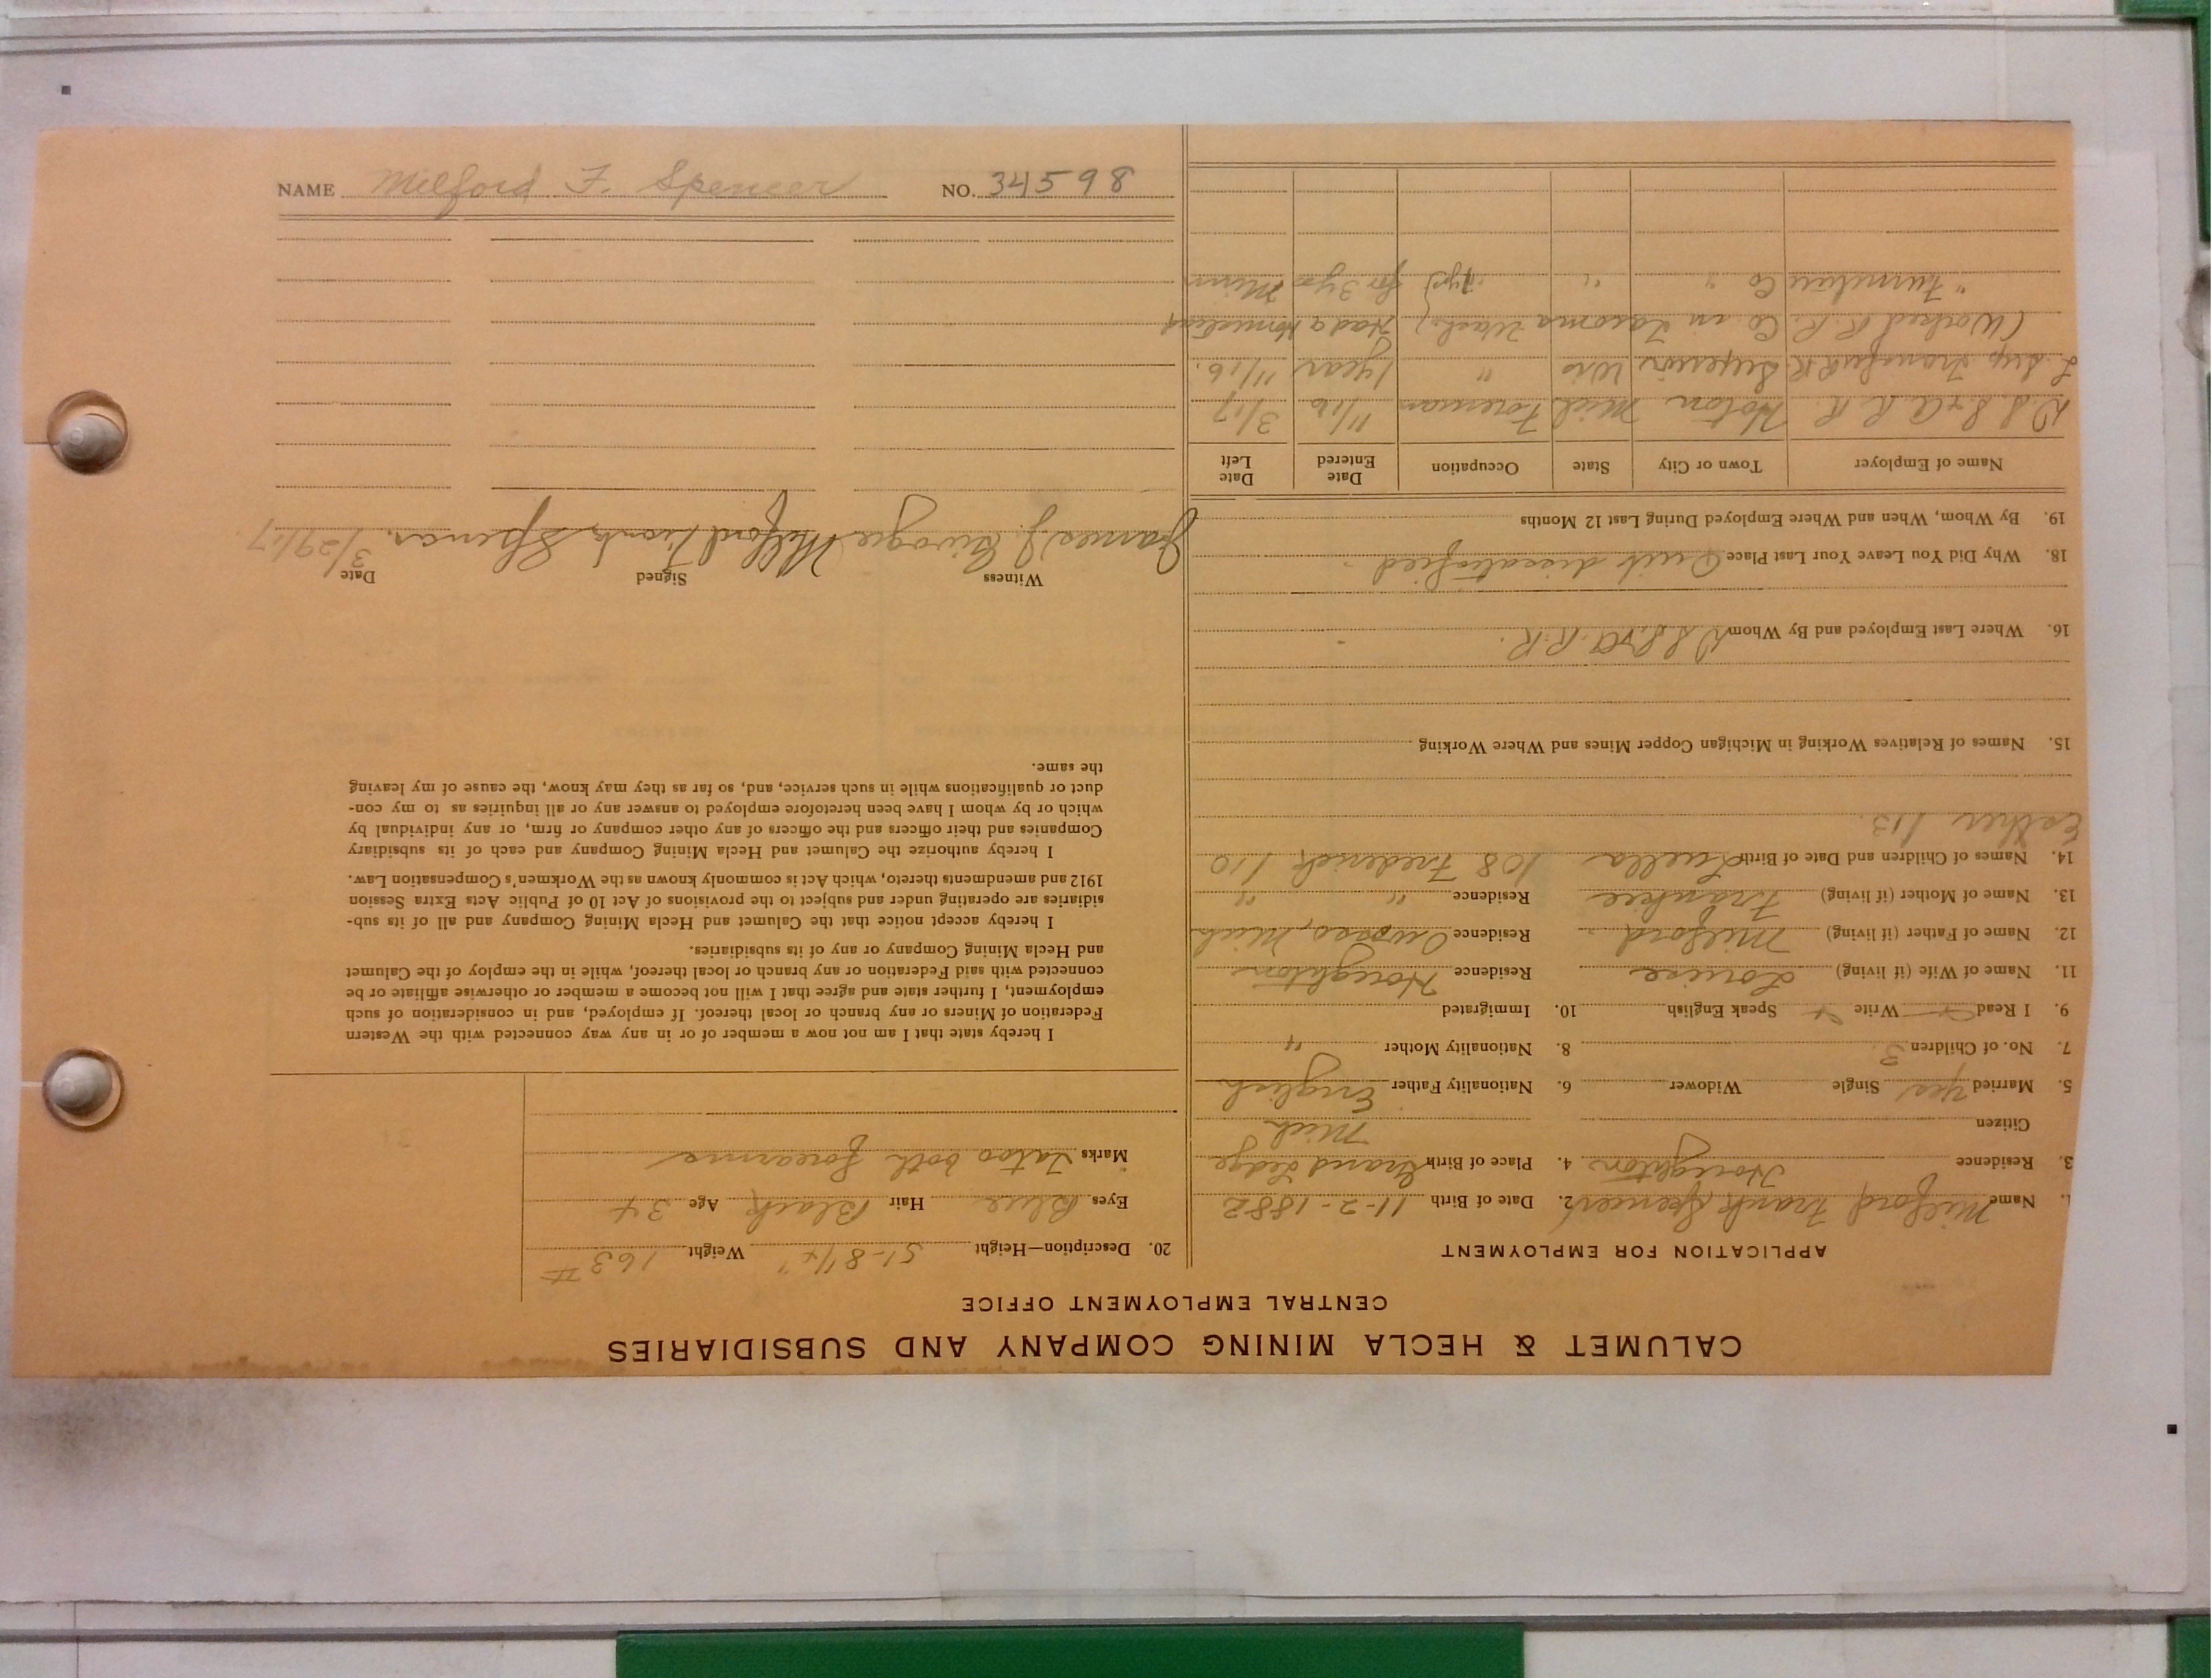 NAME Milford F. Spencer NO. 34598
CALUMET & HECLA MINING COMPANY AND SUBSIDIARIES
CENTRAL EMPLOYMENT OFFICE
APPLICATION FOR EMPLOYMENT
1. Name Milford Frank Spencer 2. Date of Birth 11-2-1882
3. Residence Houghton 4. Place of Birth Grand Ledge
Citizen Mich
5. Married Yes Single Widower 6. Nationality Father English
7. No. of Children 3 8. Nationality Mother "
9. I Read Write Speak English 10. Immigrated
11. Name of Wife (if living) Louise Residence Houghton
12. Name of Father (if living) Milford Residence Owosso, Mich
13. Name of Mother (if living) Frankie Residence " "
14. Names of Children and Date of Birth Luella 108 Frederick 110
Esther 113.
15. Names of Relatives Working in Michigan Copper Mines and Where Working
16. Where Last Employed and By Whom D.S.S.&A. R.R.
18. Why Did You Leave Your Last Place Quit dissatisfied
19. By Whom, When and Where Employed During Last 12 Months
Name of Employer Town or City State Occupation Date Entered Date Left
D.S.S.&A. R.R. Hoton Mich Foreman 11/16 3/17
L. Sup. Transfer R.R. Superior Wis " 1 year 11/16.
(Worked R.R. Co in Tacoma Wash.) Had a Homestead
" Furniture Co " " for 3 yrs Minn
20. Description—Height 5'-8 1/4" Weight 163 #
Eyes Blue Hair Black Age 34
Marks Tatoo both forearms
I hereby state that I am not now a member of or in any way connected with the Western
Federation of Miners or any branch or local thereof. If employed, and in consideration of such
employment, I further state and agree that I will not become a member or otherwise affiliate or be
connected with said Federation or any branch or local thereof, while in the employ of the Calumet
and Hecla Mining Company or any of its subsidiaries.
I hereby accept notice that the Calumet and Hecla Mining Company and all of its sub-
sidiaries are operating under and subject to the provisions of Act 10 of Public Acts Extra Session
1912 and amendments thereto, which Act is commonly known as the Workmen's Compensation Law.
I hereby authorize the Calumet and Hecla Mining Company and each of its subsidiary
Companies and their officers and the officers of any other company or firm, or any individual by
which or by whom I have been heretofore employed to answer any or all inquiries as to my con-
duct or qualifications while in such service, and, so far as they may know, the cause of my leaving
the same.
Witness Signed Date
James J. Milford Frank Spencer. 3/29/17